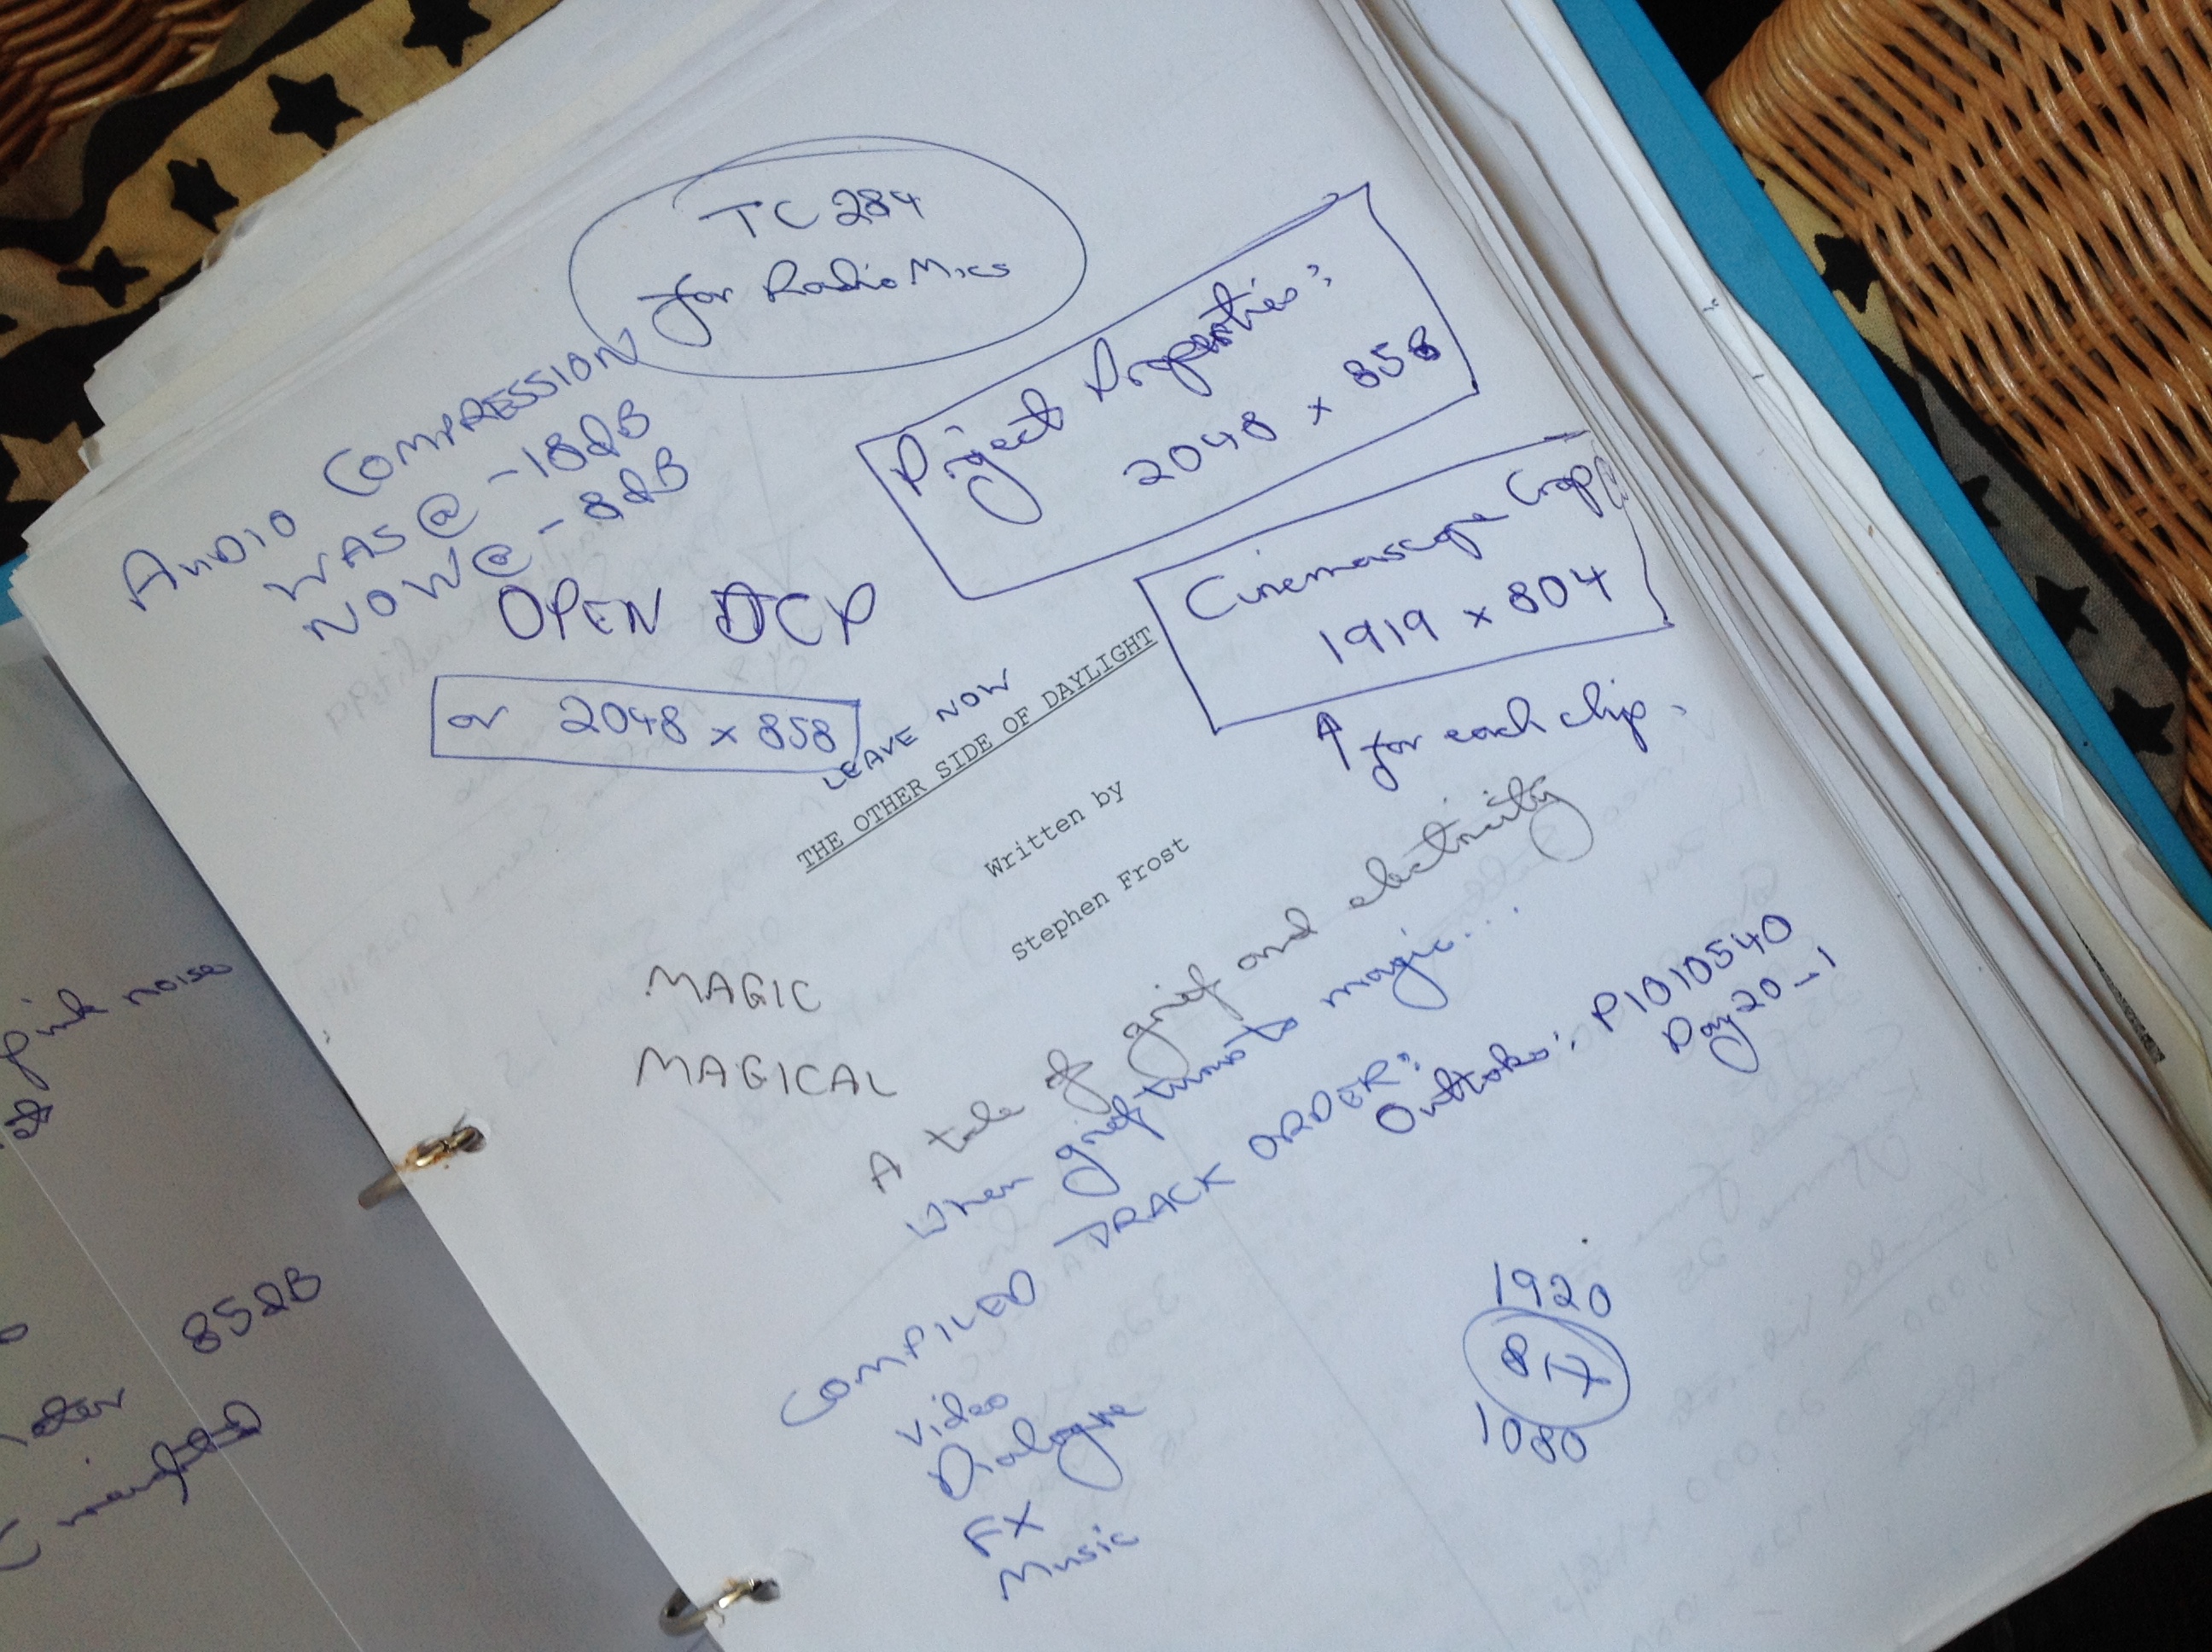 TC 284
for Radio Mics
AUDIO COMPRESSION
WAS @ -18dB
NOW @ -8dB
Project Properties:
2048 x 858
Cinemascope Crop
1919 x 804
↑ for each clip.
OPEN DCP
or 2048 x 858
LEAVE NOW
THE OTHER SIDE OF DAYLIGHT
Written by
Stephen Frost
MAGIC
MAGICAL
A tale of grief and electricity
When grief turns to magic...
COMPILED TRACK ORDER:
Video
Dialogue
FX
Music
Outtake: P1010540
Day 20_1
1920
1080
pink noise
85dB